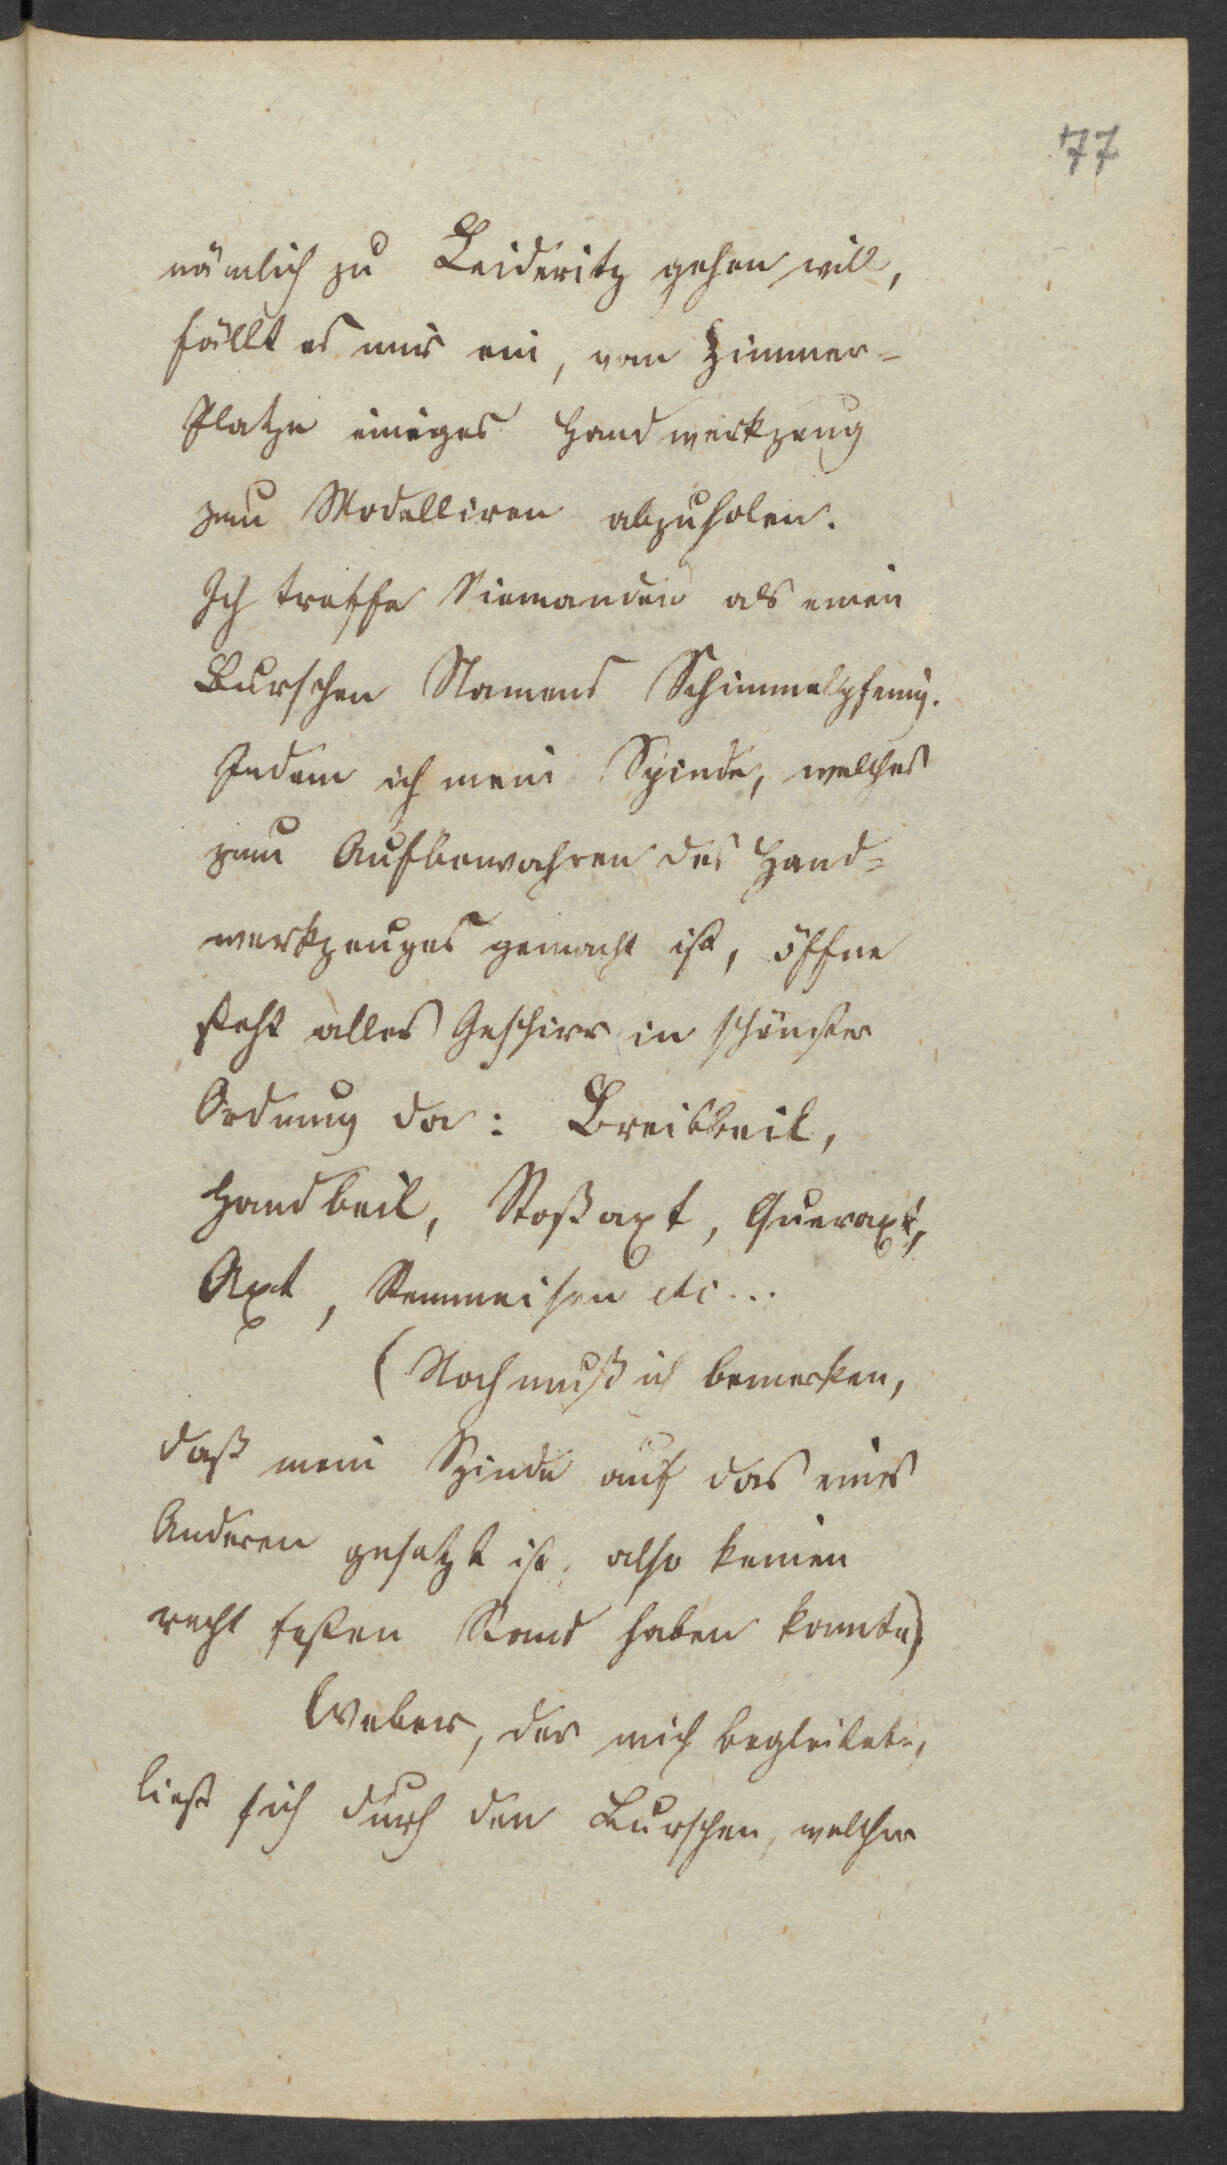 77
nämlich zu Leideritz gehen will,
fällt es mir ein, vom Zimmer-
Platze einiges Handwerkzeug
zum Modelliren abzuholen.
Ich treffe Niemanden als einen
Burschen Namens Schimmelpfenig.
Indem ich mein Spinde, welches
zum Aufbewahren des Hand=
werkzeuges gemacht ist, öffne
steht alles Geschirr in schönster
Ordnung da: Breitbeil,
Handbeil, Stoßaxt, Queraxt,
Axt, Stemmeisen etc...
(Noch muß ich bemerken,
daß mein Spinde auf das eines
Anderen gesetzt ist, also keinen
recht festen Stand haben konnte)
Weber, der mich begleitete,
ließ sich durch den Burschen, welcher